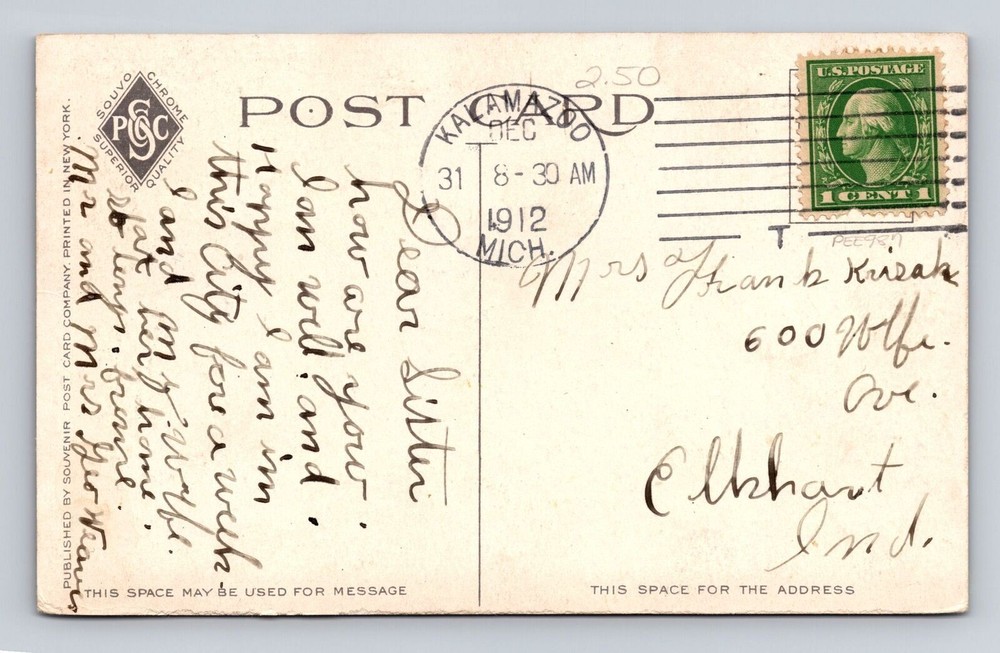 POST CARD
2.50
SOUVO CHROME
SUPERIOR QUALITY
SPCC
KALAMAZOO
DEC
31 8-30 AM
1912
MICH.
U.S. POSTAGE
1 CENT 1
T
PEE987
Mrs Frank Krizak
600 Wolfe.
Ave.
Elkhart
Ind.
Dear Sister
how are you.
I am well. and.
Happy I am in
this City fore a week-
I and My Wife.
stat her home.
so long.
Mr and Mrs Geo Weaver
THIS SPACE MAY BE USED FOR MESSAGE
THIS SPACE FOR THE ADDRESS
PUBLISHED BY SOUVENIR POST CARD COMPANY. PRINTED IN NEW YORK.